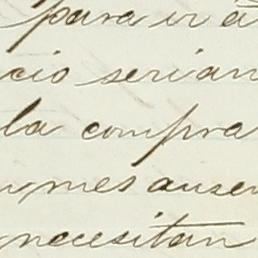 para ir á
cio serian
la compra
mes ausen
necesitan